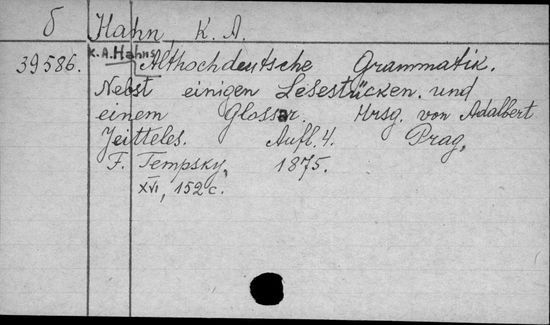 б Hahn, K. A.
39586. K. A. Hahns Althochdeutsche Grammatik.
Nebst einigen Lesestücken und
einem Glossar. Hrsg. von Adalbert
Jeitteles. Aufl. 4. Prag,
F. Tempsky, 1875.
XVI, 152 c.